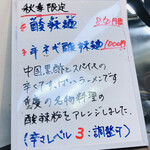 秋季限定
酸辣麺 850円
年ネギ酸辣麺 1000円
中国黒酢とスパイスの
辛くてすっぱいラーメンです
重慶の名物料理の
酸辣粉をアレンジしました
(辛さレベル3:調整可)